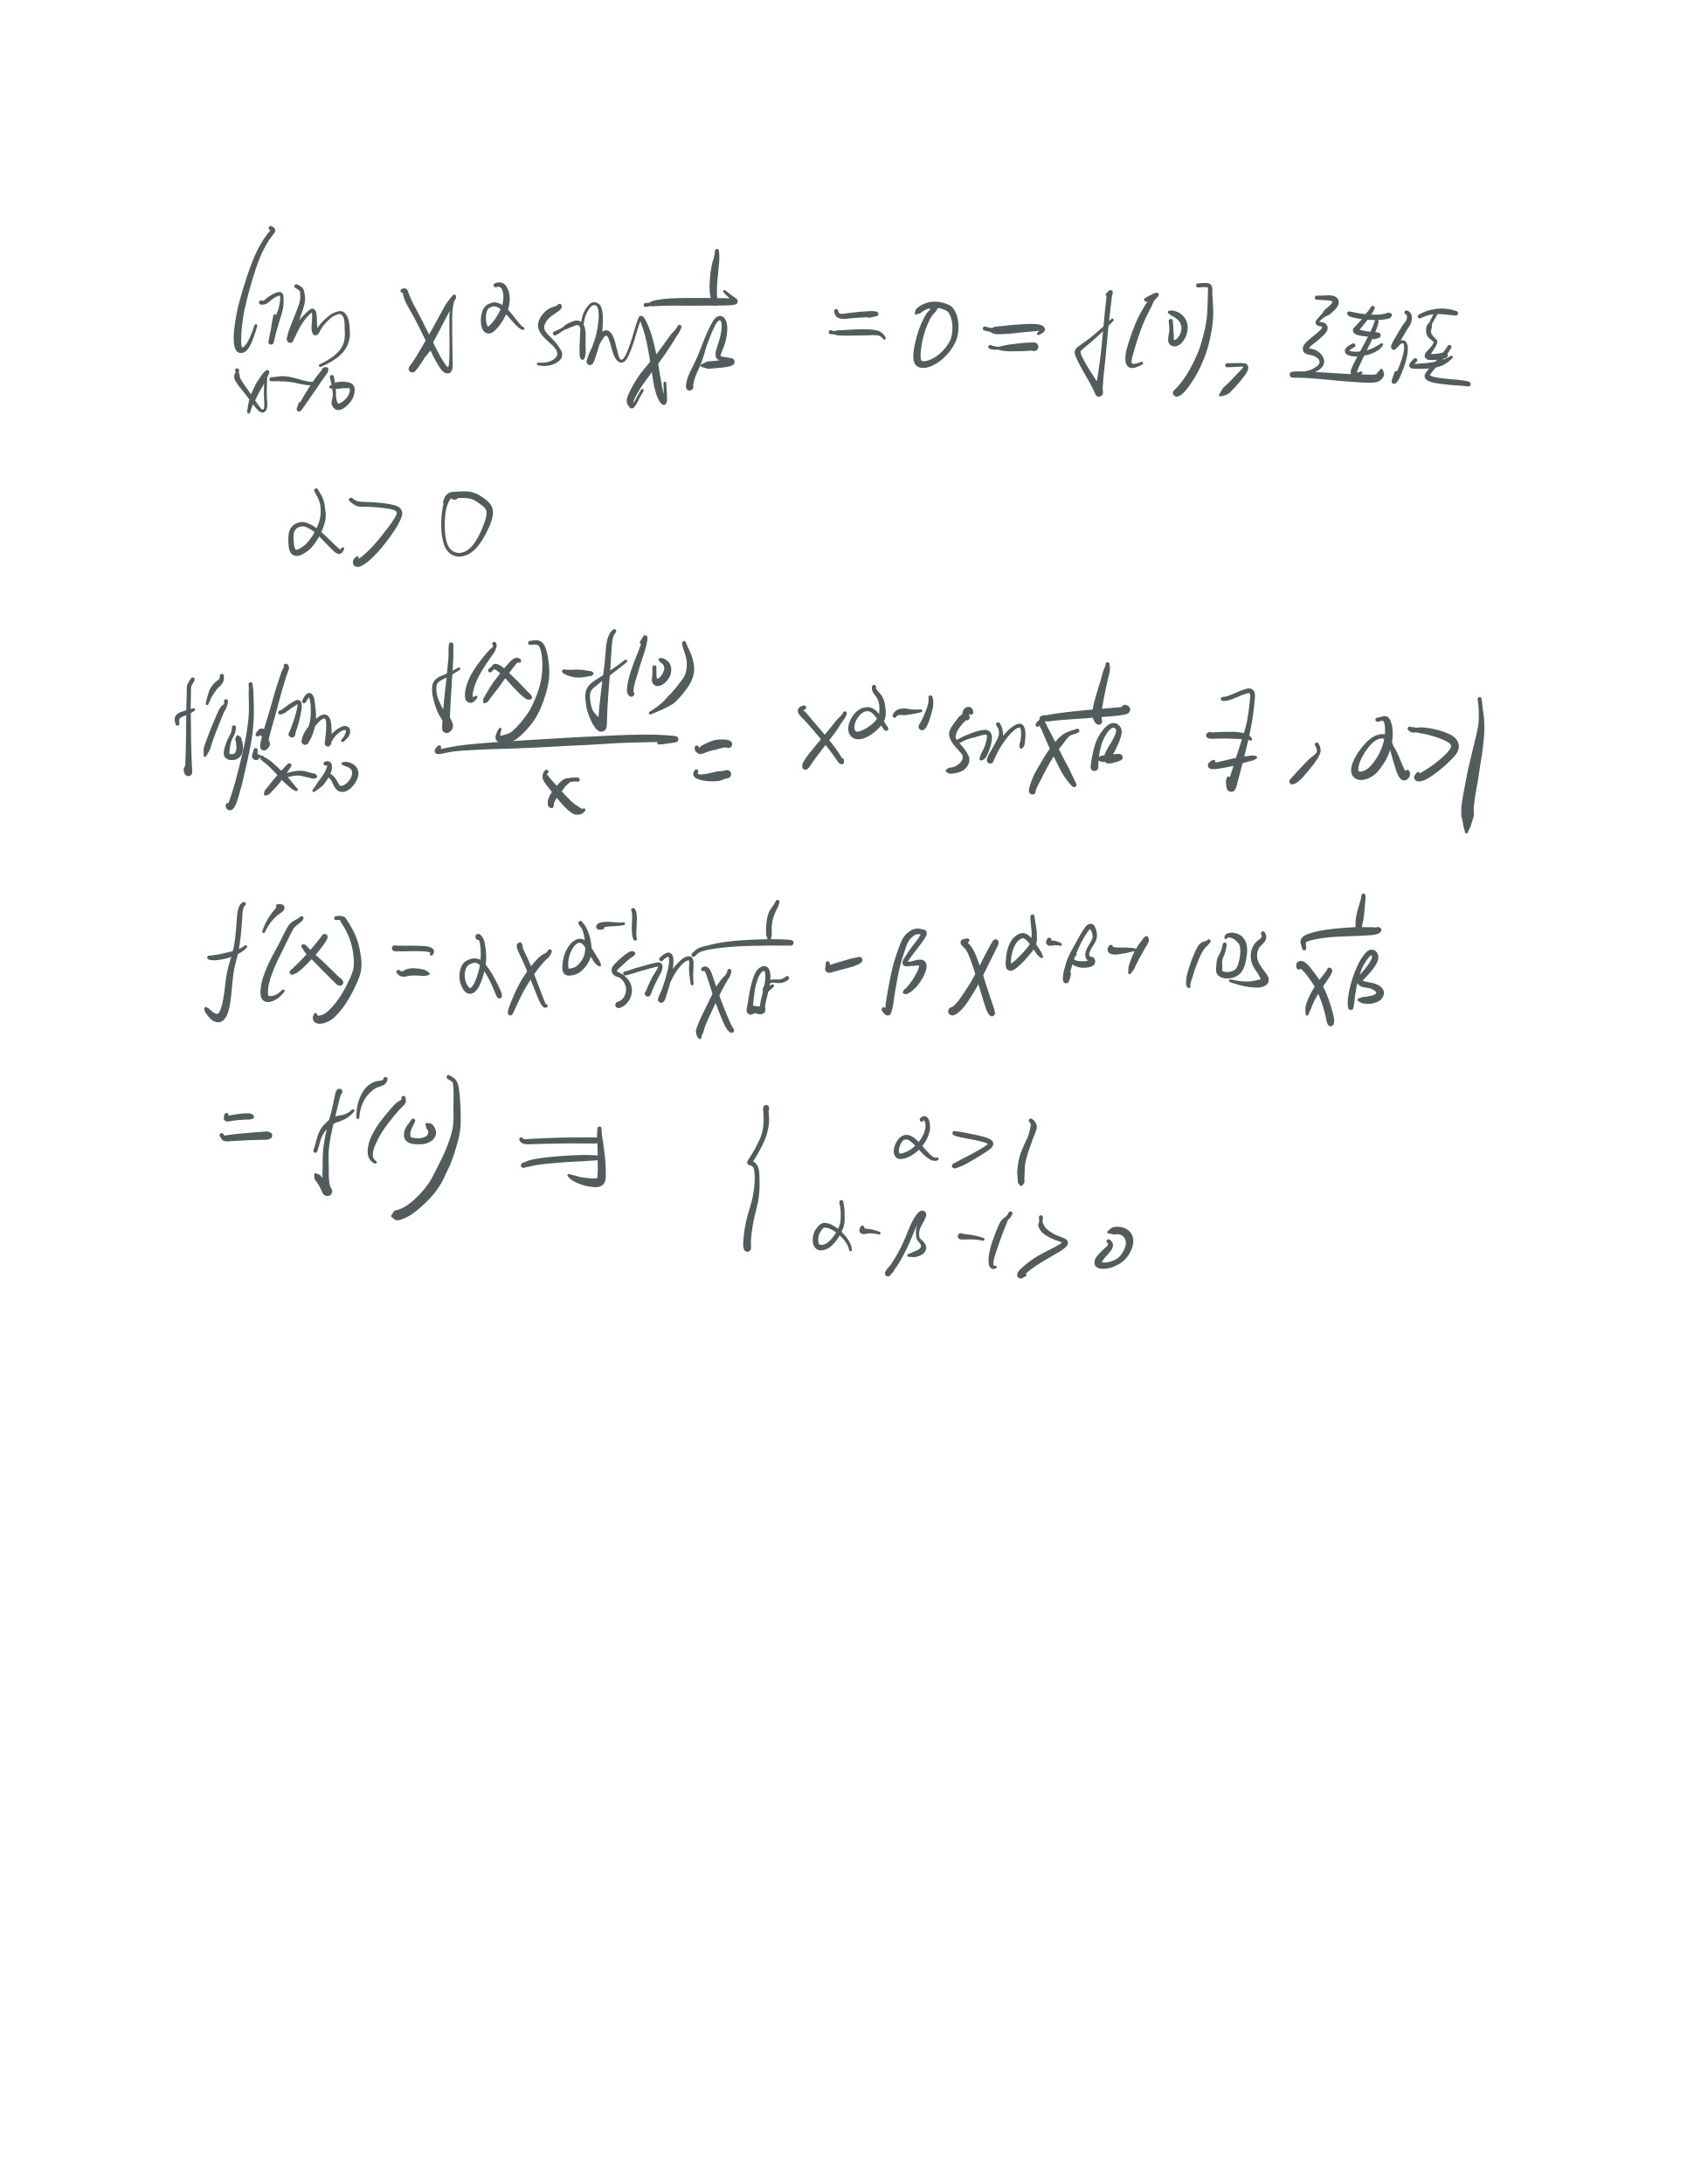 lim x→0 x^α sin 1/x^β = 0 = f(0), 连续
α > 0
f'(0) lim x→0 (f(x)-f(0))/x = x^(α-1) sin 1/x^β ∃, α>1
f'(x) = αx^(α-1) sin 1/x^β - βx^(α-β-1) cos 1/x^β
= f'(0) ∃ { α > 1
α-β-1 > 0